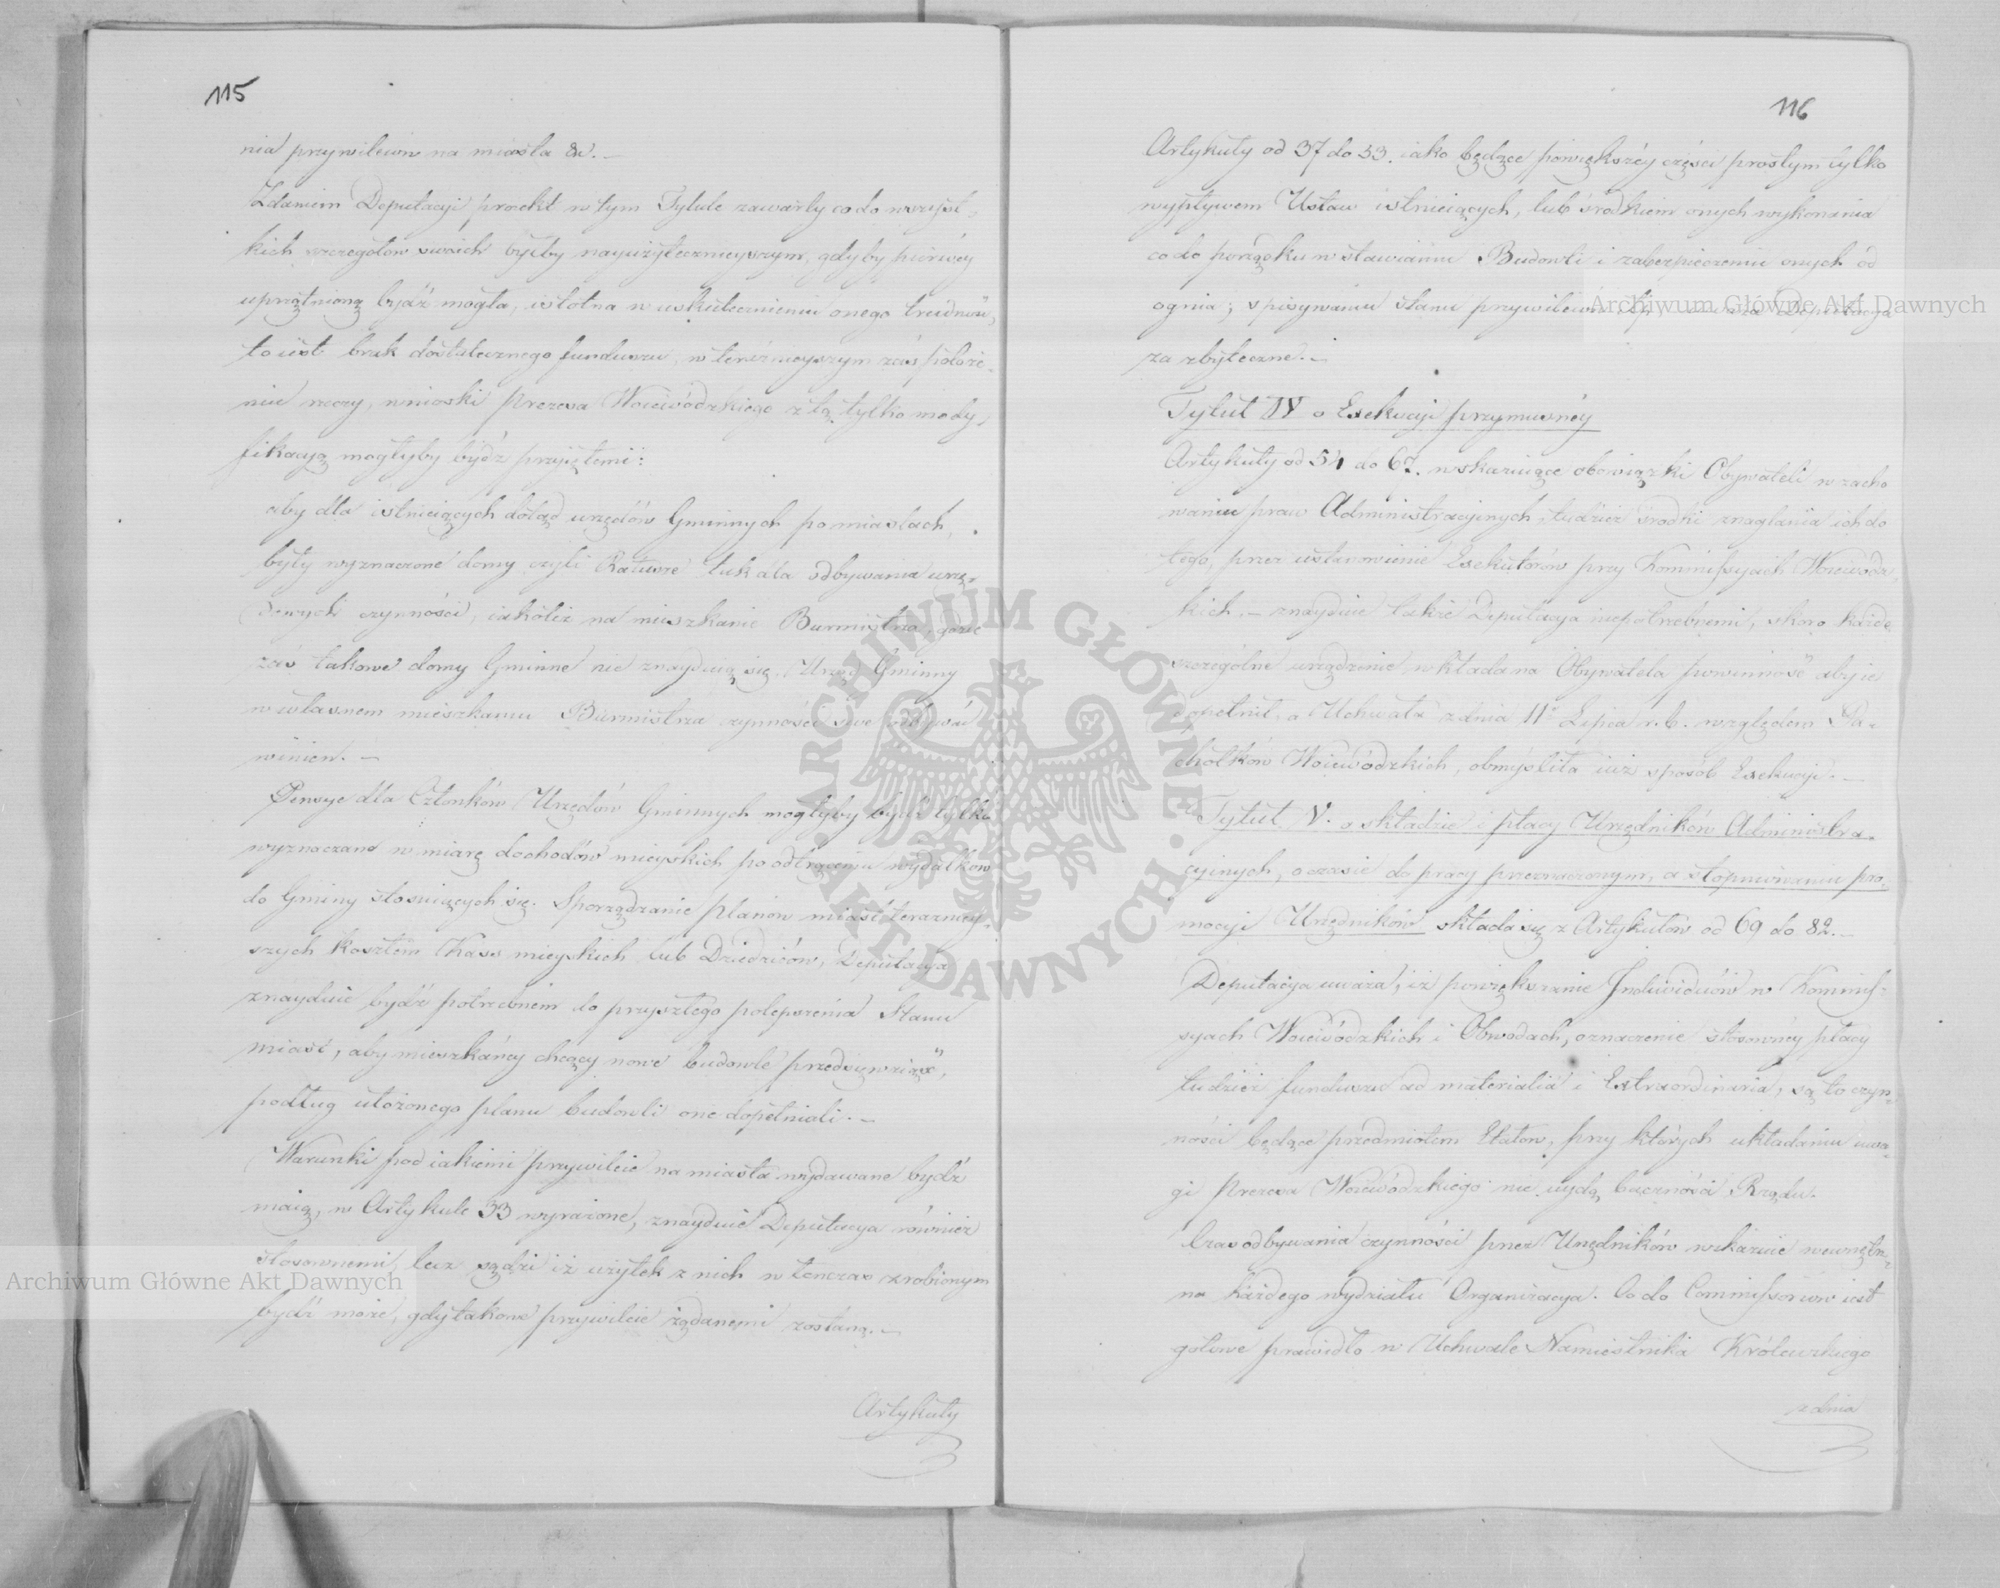 115
nia przywilejow na miasta &c. –
Zdaniem Deputacyi proiekt w tym Tytule zawarty co do wszyst-
kich szczegołów swoich byłby nayużytecznieyszym, gdyby pierwey
uprzątnioną bydź mogła, istotna w uskutecznieniu onego trudność,
to iest brak dostatecznego funduszu, w terazńieyszym zaś położe-
niu rzeczy, wnioski Prezesa Woiewódzkiego z tą tylko mody-
fikacyą mogłyby bydź przyiętemi:
aby dla istnieiących dotąd urzędów Gminnych po miastach,
były wyznaczone domy czyli Ratusze tak dla odbywania urzę-
dowych czynności, iakoteż na mieszkanie Burmistrza, gdzie
zaś takowe domy Gminne nie znayduią się, Urząd Gminny
w własnem mieszkaniu Burmistrza czynności swe odbywać
winien. –
Pensye dla Członków Urzędów Gminnych mogłyby bydź tylko
wyznaczane w miarę dochodów mieyskich po odtrąceniu wydatków
do Gminy stosuiących się. Sporządzanie planów miast terazniey-
szych kosztem Kass mieyskich lub Dziedziców, Deputacya
znayduie bydź potrzebnem do przyszłego polepszenia Stanu
miast, aby mieszkańcy chcący nowe budowle przedsięwziąść,
podług ułożonego planu budowli one dopełniali. –
Warunki pod iakiemi przywileie na miasta wydawane bydź
maią, w Artykule 33 wyrażone, znayduie Deputacya również
stosownemi, lecz sądzi iż użytek z nich w tenczas zrobionym
bydź może, gdy takowe przywileie żądanemi zostaną. –
Artykuły
116
Artykuły od 37 do 53. iako będące powiększéy części prostym tylko
wypływem Ustaw istnieiących, lub środkiem onych wykonania
co do porządku w stawianiu Budowli i zabezpieczeniu onych od
ognia; spisywaniu stanu przywilejów etc. uważa Deputacya
za zbyteczne. –
Tytuł IV o Exekucyi przymusnéy
Artykuły od 54 do 67. wskazuiące obowiązki Obywateli w zacho
waniu praw Administracyjnych, tudzież środki znaglania ich do
tego, przez ustanowienie Exekutorów przy Kommissyach Woiewódz-
kich. – znayduie także Deputacya niepotrzebnemi, skoro każde
szczególne urządzenie wkłada na Obywatela powinność aby je
dopełnił, a Uchwała z dnia 11o Lipca r. b. względem Pa-
chołków Woiewódzkich, obmyśliła iuż sposób Exekucyi. –
Tytuł V. o składzie i płacy Urzędników Administra-
cyjnych, o czasie do pracy przeznaczonym, a stopniowaniu pro-
mocyi Urzędników składa się z Artykułów od 69 do 82. –
Deputacya uważa, iż powiększanie Indiwiduów w Kommis-
syach Woiewódzkich i Obwodach, oznaczenie stosownéy płacy
tudzież funduszu ad materialia i Extraordinaria, są to czyn-
ności będące przedmiotem Etatow, przy których układaniu uwa-
gi Prezesa Woiewódzkiego nie uydą baczności Rządu.
Czas odbywania czynności przez Urzędników wskazuie wewnętrz-
na każdego wydziału Organizacya. Co do Commissoriow iest
gotowe prawidło w Uchwale Namiestnika Królewskiego
z dnia
Archiwum Główne Akt Dawnych
Archiwum Główne Akt Dawnych
ARCHIWUM GŁÓWNE AKT DAWNYCH